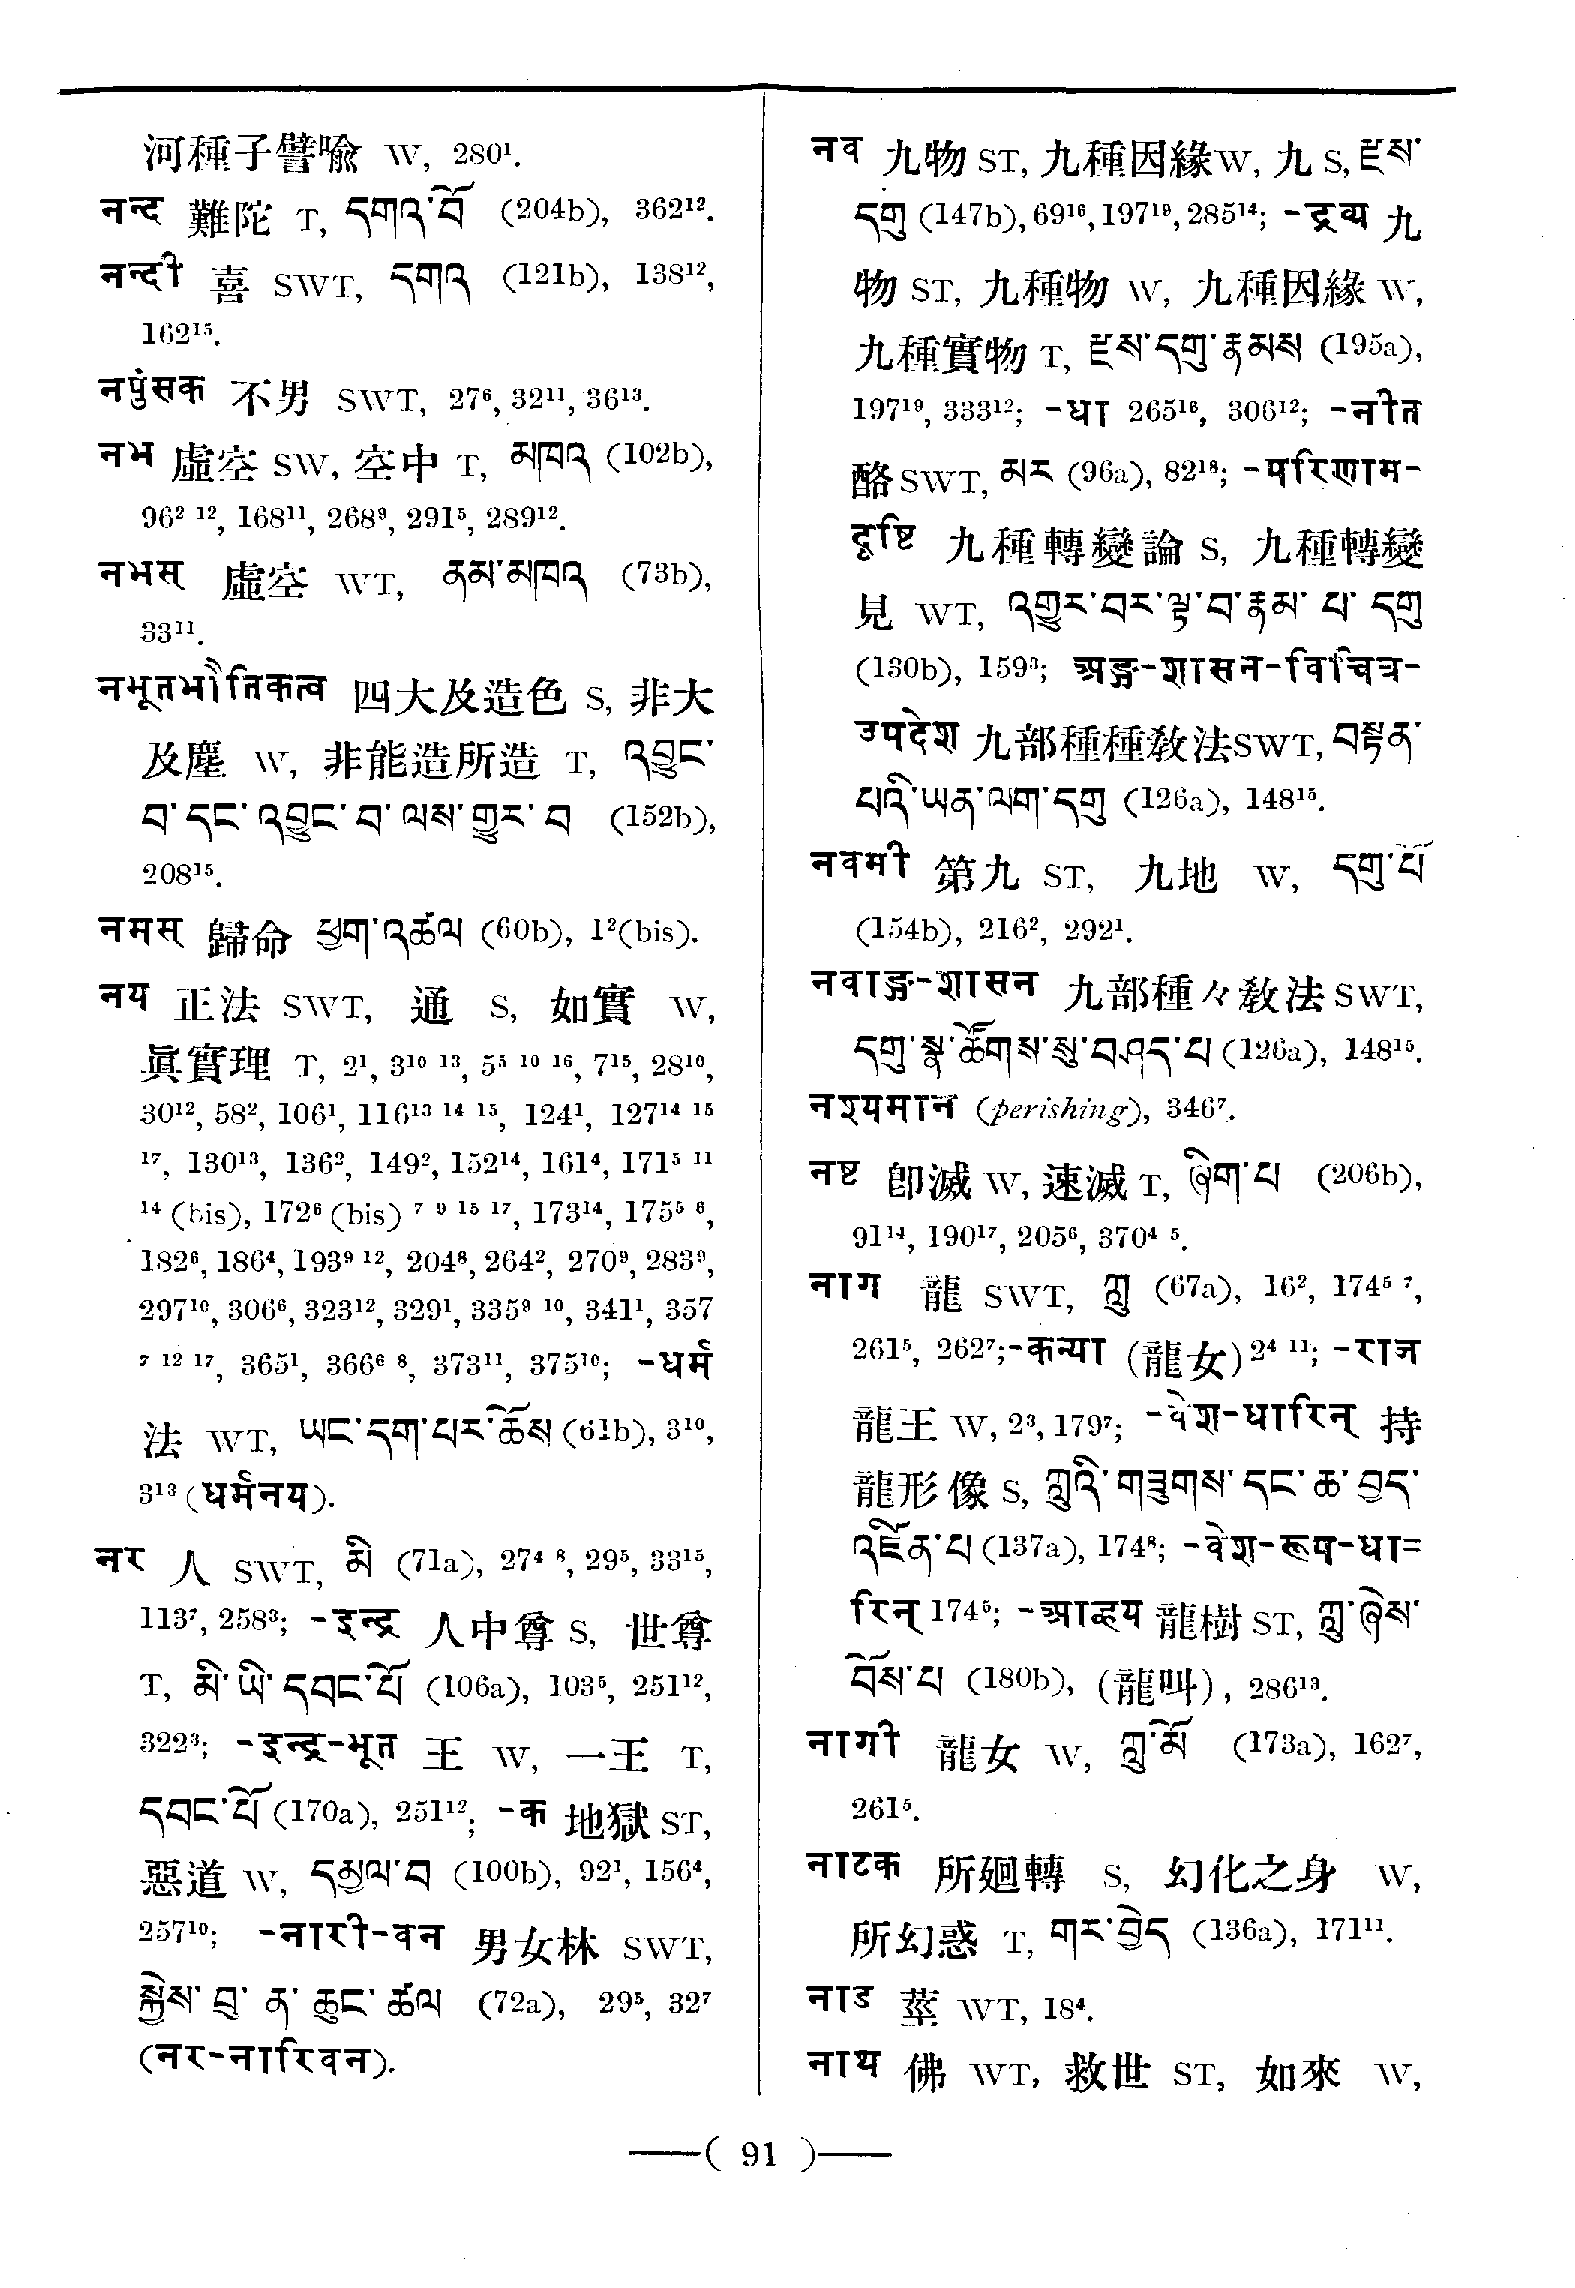 河種子譬喩 W, 280¹.
नन्द 難陀 T, དགའ་བོ (204b), 362¹².
नन्दी 喜 SWT, དགའ (121b), 138¹²,
162¹⁵.
नपुंसक 不男 SWT, 27⁶, 32¹¹, 36¹³.
नभ 虛空 SW, 空中 T, མཁའ (102b),
96² ¹², 168¹¹, 268⁹, 291⁵, 289¹².
नभस् 虛空 WT, ནམ་མཁའ (73b),
33¹¹.
नभूतभौतिकत्व 四大及造色 S, 非大
及塵 W, 非能造所造 T, འབྱུང་
བ་དང་འབྱུང་བ་ལས་གྱུར་བ (152b),
208¹⁵.
नमस् 歸命 ཕྱག་འཚལ (60b), 1²(bis).
नय 正法 SWT, 通 S, 如實 W,
眞實理 T, 2¹, 3¹⁰ ¹³, 5⁵ ¹⁰ ¹⁶, 7¹⁵, 28¹⁰,
30¹², 58², 106¹, 116¹³ ¹⁴ ¹⁵, 124¹, 127¹⁴ ¹⁵
¹⁷, 130¹³, 136², 149², 152¹⁴, 161⁴, 171⁵ ¹¹
¹⁴ (bis), 172⁶ (bis) ⁷ ⁹ ¹⁵ ¹⁷, 173¹⁴, 175⁵ ⁶,
182⁶, 186⁴, 193⁹ ¹², 204⁸, 264², 270⁹, 283⁹,
297¹⁰, 306⁶, 323¹², 329¹, 335⁹ ¹⁰, 341¹, 357
⁷ ¹² ¹⁷, 365¹, 366⁶ ⁸, 373¹¹, 375¹⁰; -धर्म
法 WT, ཡང་དག་པར་ཆོས (61b), 3¹⁰,
3¹³ (धर्मनय).
नर 人 SWT, མི (71a), 27⁴ ⁸, 29⁵, 33¹⁵,
113⁷, 258³; -इन्द्र 人中尊 S, 世尊
T, མི་ཡི་དབང་པོ (106a), 103⁵, 251¹²,
322³; -इन्द्र-भूत 王 W, 一王 T,
དབང་པོ (170a), 251¹²; -क 地獄 ST,
惡道 W, དམྱལ་བ (100b), 92¹, 156⁴,
257¹⁰; -नारी-वन 男女林 SWT,
སྐྱེས་བུ་ན་ཆུང་ཚལ (72a), 29⁵, 32⁷
(नर-नारिवन).
नव 九物 ST, 九種因緣W, 九 S, རྫས་
དགུ (147b), 69¹⁶, 197¹⁹, 285¹⁴; -द्रव्य 九
物 ST, 九種物 W, 九種因緣 W,
九種實物 T, རྫས་དགུ་རྣམས (195a),
197¹⁹, 333¹²; -धा 265¹⁶, 306¹²; -नीत
酪SWT, མར (96a), 82¹⁸; -परिणाम-
दृष्टि 九種轉變論 S, 九種轉變
見 WT, འགྱུར་བར་ལྟ་བ་རྣམ་པ་དགུ
(130b), 159³; अङ्ग-शासन-विचित्र-
उपदेश 九部種種敎法SWT, བསྟན་
པའི་ཡན་ལག་དགུ (126a), 148¹⁵.
नवमी 第九 ST, 九地 W, དགུ་པོ
(154b), 216², 292¹.
नवाङ्ग-शासन 九部種々敎法SWT,
དགུ་སྣ་ཚོགས་སུ་བཤད་པ (126a), 148¹⁵.
नश्यमान (perishing), 346⁷.
नष्ट 卽滅 W, 速滅 T, ཞིག་པ (206b),
91¹⁴, 190¹⁷, 205⁶, 370⁴ ⁵.
नाग 龍 SWT, ཀླུ (67a), 16², 174⁵ ⁷,
261⁵, 262⁷;-कन्या (龍女)2⁴ ¹¹; -राज
龍王 W, 2³, 179⁷; -वेश-धारिन् 持
龍形像 S, ཀླུའི་གཟུགས་དང་ཆ་བྱད་
འཛིན་པ (137a), 174⁸; -वेश-रूप-धा=
रिन् 174⁵; -आह्वय 龍樹 ST, ཀླུ་ཞེས་
བོས་པ (180b), (龍叫), 286¹³.
नागी 龍女 W, ཀླུ་མོ (173a), 162⁷,
261⁵.
नाटक 所廻轉 S, 幻化之身 W,
所幻惑 T, གར་བྱེད (136a), 171¹¹.
नाड 莖 WT, 18⁴.
नाथ 佛 WT, 救世 ST, 如來 W,
—( 91 )—